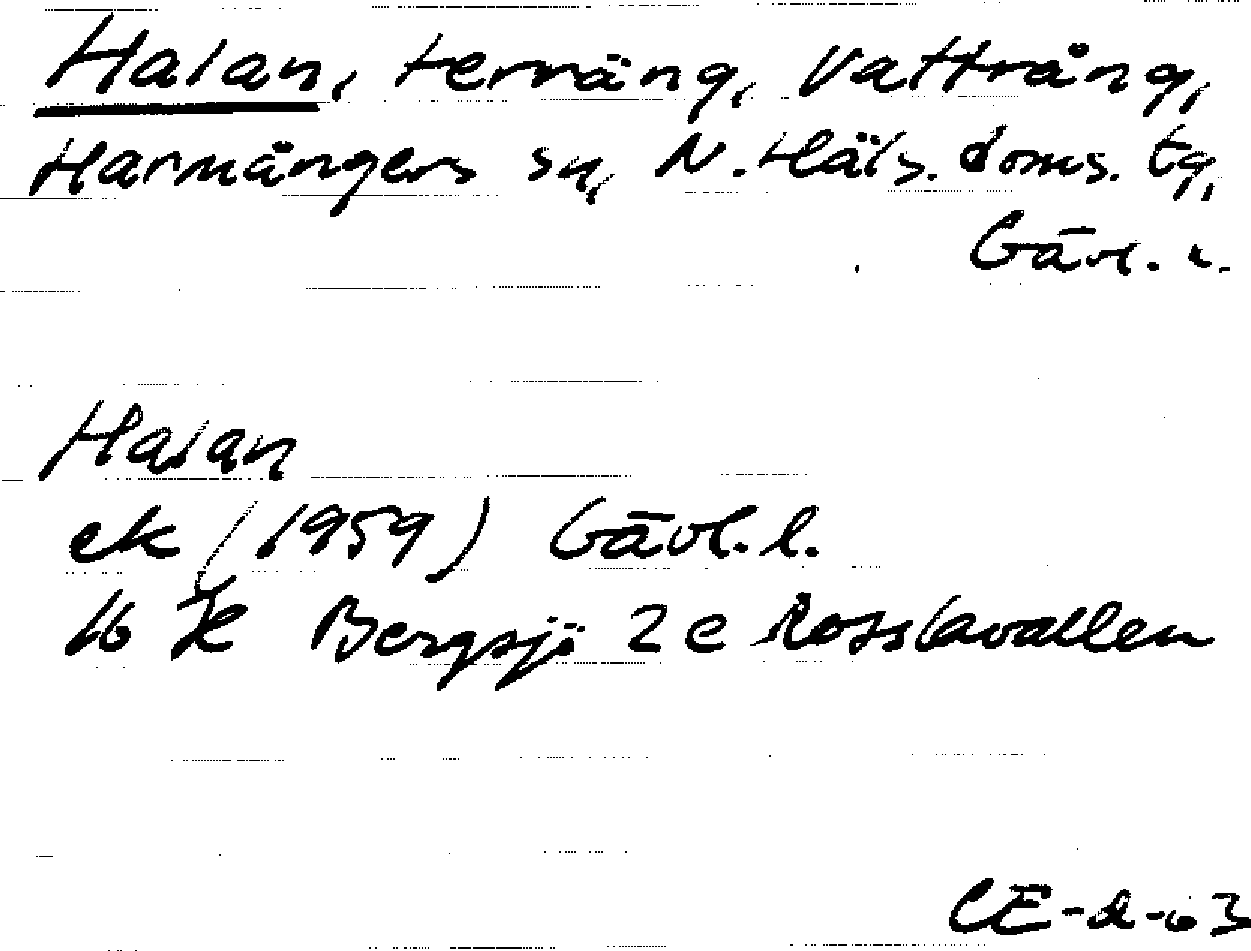 Halan, terräng, Vattrång,
Harmångers sn, N. Häls. doms. tg,
Gävl. l.
Halan
ek (1959) Gävl. l.
16 H Bergsjö 2 e Rosslavallen
CE-2-63